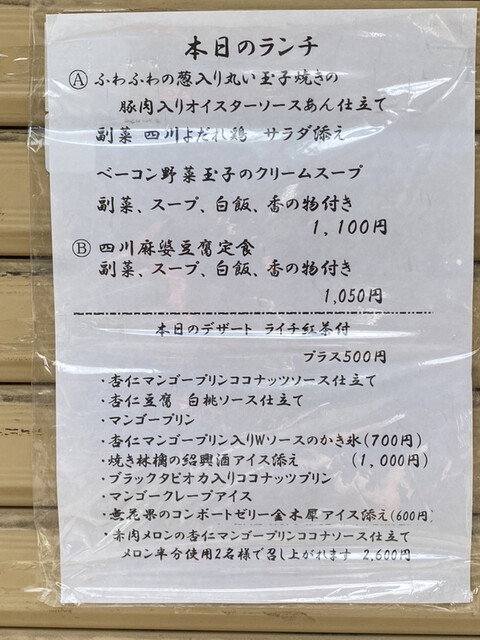 本日のランチ
Ⓐ ふわふわの葱入り丸い玉子焼きの
豚肉入りオイスターソースあん仕立て
副菜 四川よだれ鶏 サラダ添え
ベーコン野菜玉子のクリームスープ
副菜、スープ、白飯、香の物付き
1,100円
Ⓑ 四川麻婆豆腐定食
副菜、スープ、白飯、香の物付き
1,050円
本日のデザート ライチ紅茶付
プラス500円
・杏仁マンゴープリンココナッツソース仕立て
・杏仁豆腐 白桃ソース仕立て
・マンゴープリン
・杏仁マンゴープリン入りWソースのかき氷(700円)
・焼き林檎の紹興酒アイス添え (1,000円)
・ブラックタピオカ入りココナッツプリン
・マンゴークレープアイス
・無花果のコンポートゼリー金木犀アイス添え(600円)
・赤肉メロンの杏仁マンゴープリンココナソース仕立て
メロン半分使用2名様で召し上がれます 2,600円